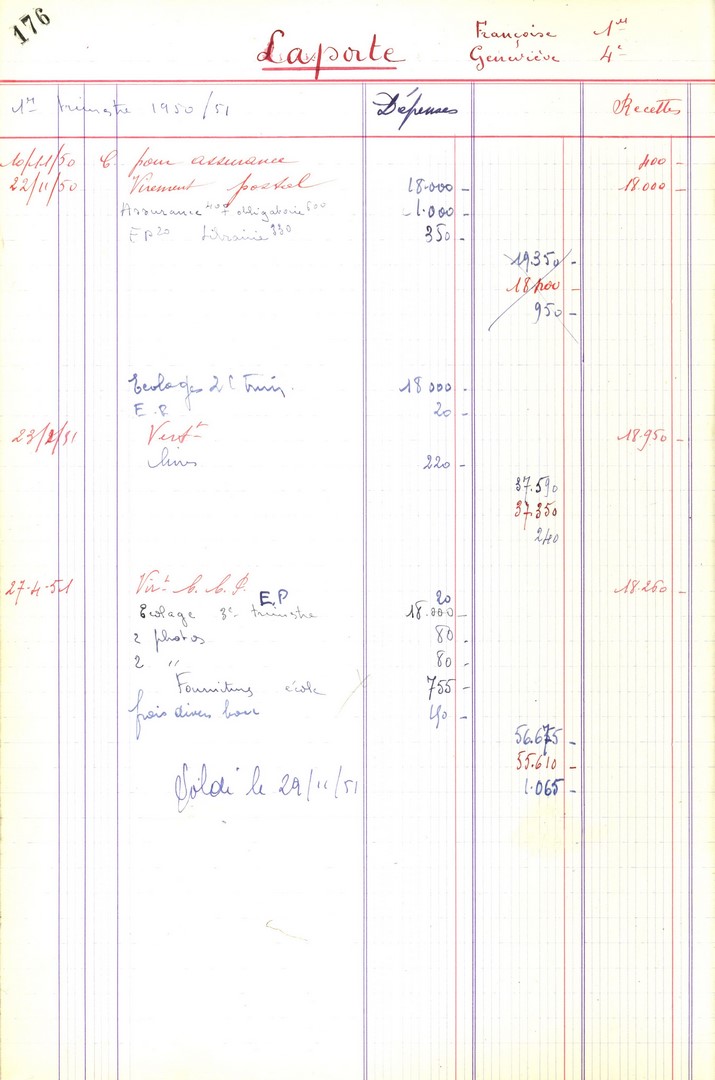 176
Laporte
Françoise 1re
Geneviève 4e
1er trimestre 1950/51 Dépenses Recettes
10/11/50 C. pour assurance 400 -
22/11/50 Virement postal 18.000 - 18.000 -
Assurance 400 + obligatoire 600 1.000 -
EP 20 Librairie 330 350 -
19350 -
18400 -
950 -
Ecolages 2e trim. 18 000 -
E.P. 20 -
23/2/51 Versт 18.950 -
livres 220 -
37.590
37.350
240
27-4-51 Virt C.C.P. 18.260 -
E.P 20
Ecolage 3e trimestre 18.000 -
2 photos 80 -
2 " 80 -
Fournitures école 755 -
frais divers 
56.675 -
55.610 -
1.065 -
Soldé le 29/11/51